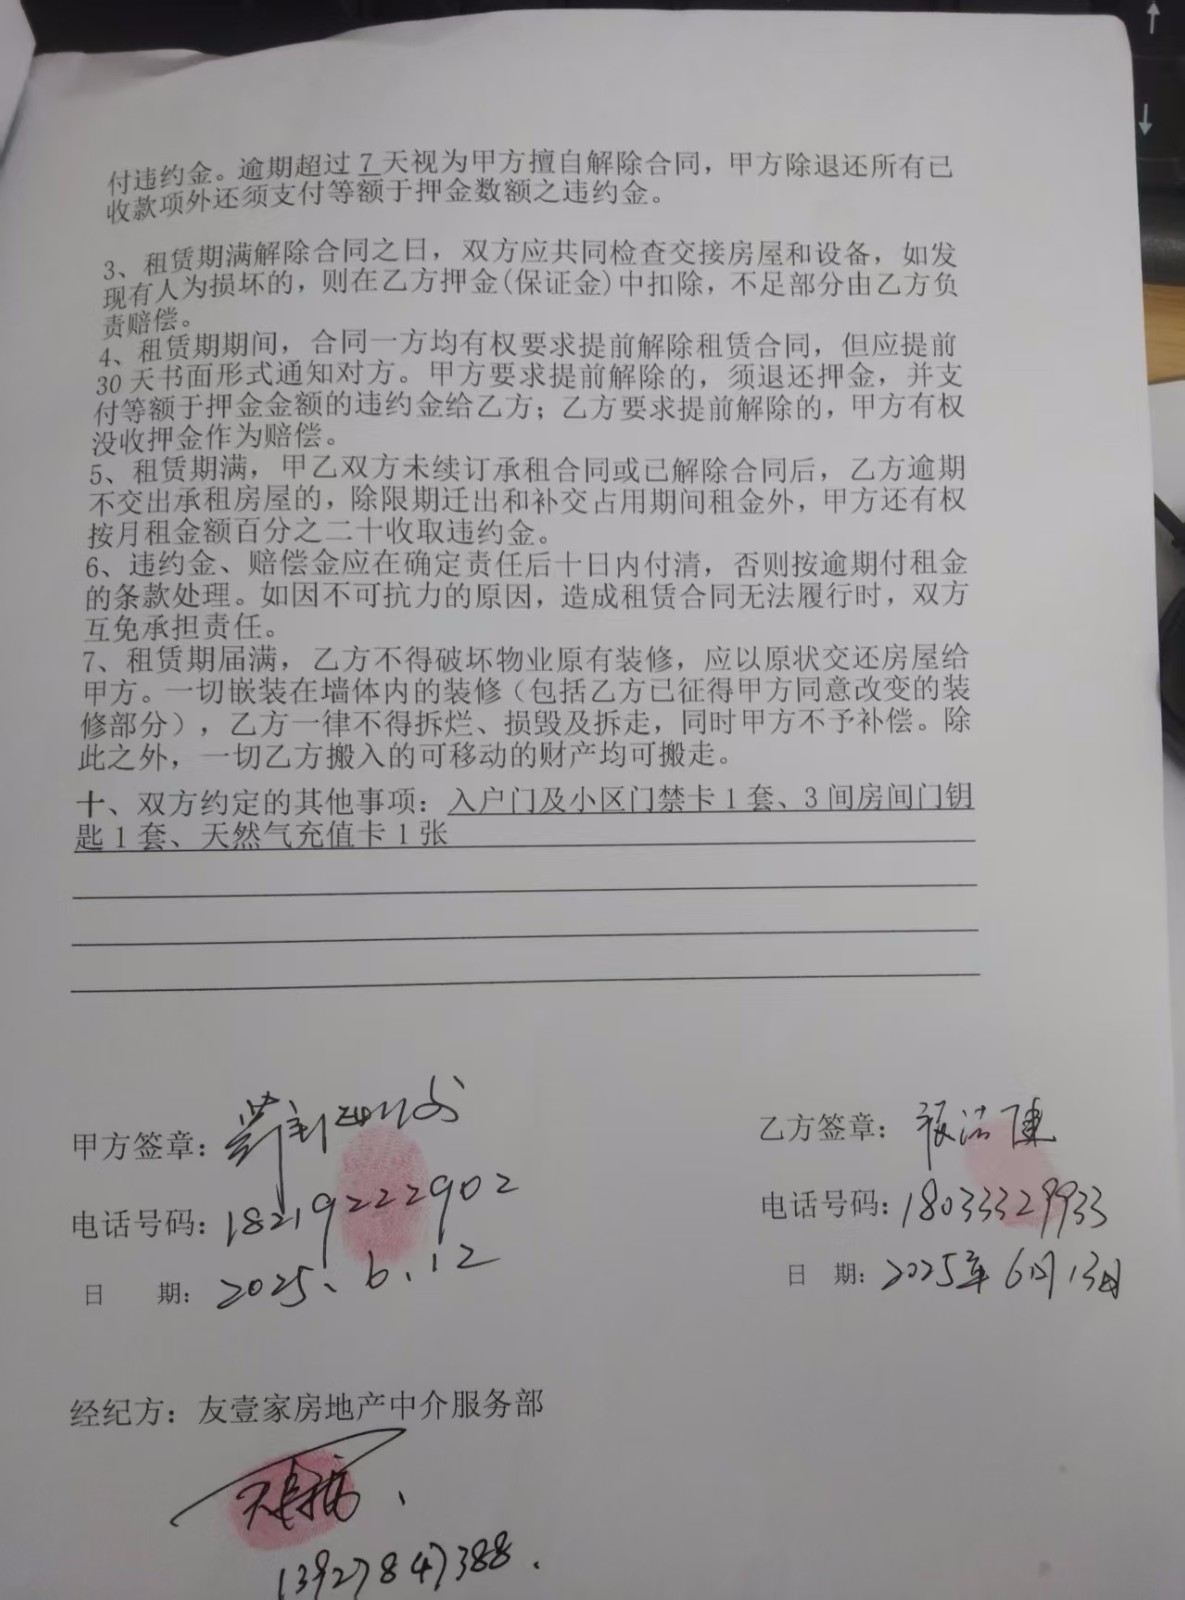 付违约金。逾期超过 7 天视为甲方擅自解除合同，甲方除退还所有已
收款项外还须支付等额于押金数额之违约金。
3、租赁期满解除合同之日，双方应共同检查交接房屋和设备，如发
现有人为损坏的，则在乙方押金(保证金)中扣除，不足部分由乙方负
责赔偿。
4、租赁期期间，合同一方均有权要求提前解除租赁合同，但应提前
30 天书面形式通知对方。甲方要求提前解除的，须退还押金，并支
付等额于押金金额的违约金给乙方；乙方要求提前解除的，甲方有权
没收押金作为赔偿。
5、租赁期满，甲乙双方未续订承租合同或已解除合同后，乙方逾期
不交出承租房屋的，除限期迁出和补交占用期间租金外，甲方还有权
按月租金额百分之二十收取违约金。
6、违约金、赔偿金应在确定责任后十日内付清，否则按逾期付租金
的条款处理。如因不可抗力的原因，造成租赁合同无法履行时，双方
互免承担责任。
7、租赁期届满，乙方不得破坏物业原有装修，应以原状交还房屋给
甲方。一切嵌装在墙体内的装修（包括乙方已征得甲方同意改变的装
修部分），乙方一律不得拆烂、损毁及拆走，同时甲方不予补偿。除
此之外，一切乙方搬入的可移动的财产均可搬走。
十、双方约定的其他事项：入户门及小区门禁卡 1 套、3 间房间门钥
匙 1 套、天然气充值卡 1 张
甲方签章：
乙方签章：
电话号码：18219222902
电话号码：18033329933
日 期：2025、6.12
日 期：2025年6月13日
经纪方：友壹家房地产中介服务部
13927847388.